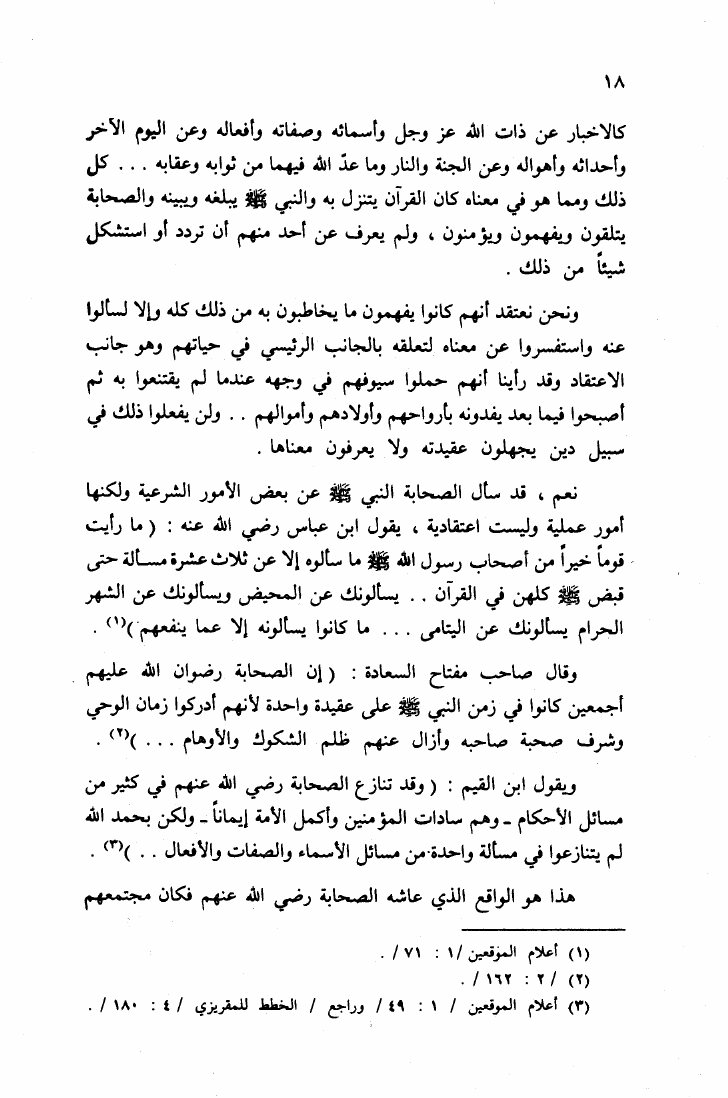 ١٨
كالاخبار عن ذات الله عز وجل وأسمائه وصفاته وأفعاله وعن اليوم الآخر
وأحداثه وأهواله وعن الجنة والنار وما عدّ الله فيهما من ثوابه وعقابه ... كل
ذلك ومما هو في معناه كان القرآن يتنزل به والنبي ﷺ يبلغه ويبينه والصحابة
يتلقون ويفهمون ويؤمنون ، ولم يعرف عن أحد منهم أن تردد أو استشكل
شيئاً من ذلك .
ونحن نعتقد أنهم كانوا يفهمون ما يخاطبون به من ذلك كله وإلا لسألوا
عنه واستفسروا عن معناه لتعلقه بالجانب الرئيسي في حياتهم وهو جانب
الاعتقاد وقد رأينا أنهم حملوا سيوفهم في وجهه عندما لم يقتنعوا به ثم
أصبحوا فيما بعد يفدونه بأرواحهم وأولادهم وأموالهم .. ولن يفعلوا ذلك في
سبيل دين يجهلون عقيدته ولا يعرفون معناها .
نعم ، قد سأل الصحابة النبي ﷺ عن بعض الأمور الشرعية ولكنها
أمور عملية وليست اعتقادية ، يقول ابن عباس رضي الله عنه : ( ما رأيت
قوماً خيراً من أصحاب رسول الله ﷺ ما سألوه إلا عن ثلاث عشرة مسألة حتى
قبض ﷺ كلهن في القرآن .. يسألونك عن المحيض ويسألونك عن الشهر
الحرام يسألونك عن اليتامى ... ما كانوا يسألونه إلا عما ينفعهم )(١) .
وقال صاحب مفتاح السعادة : ( إن الصحابة رضوان الله عليهم
أجمعين كانوا في زمن النبي ﷺ على عقيدة واحدة لأنهم أدركوا زمان الوحي
وشرف صحبة صاحبه وأزال عنهم ظلم الشكوك والأوهام ... )(٢) .
ويقول ابن القيم : ( وقد تنازع الصحابة رضي الله عنهم في كثير من
مسائل الأحكام ـ وهم سادات المؤمنين وأكمل الأمة إيماناً ـ ولكن بحمد الله
لم يتنازعوا في مسألة واحدة من مسائل الأسماء والصفات والأفعال .. )(٣) .
هذا هو الواقع الذي عاشه الصحابة رضي الله عنهم فكان مجتمعهم
(١) أعلام الموقعين /١ : ٧١/ .
(٢) /٢ : ١٦٢/ .
(٣) أعلام الموقعين / ١ : ٤٩/ وراجع / الخطط للمقريزي /٤ : ١٨٠/ .